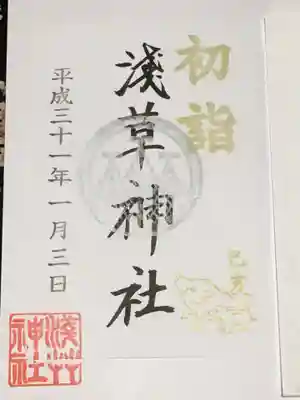 初詣
己亥
淺草神社
平成三十一年一月三日
淺草
神社